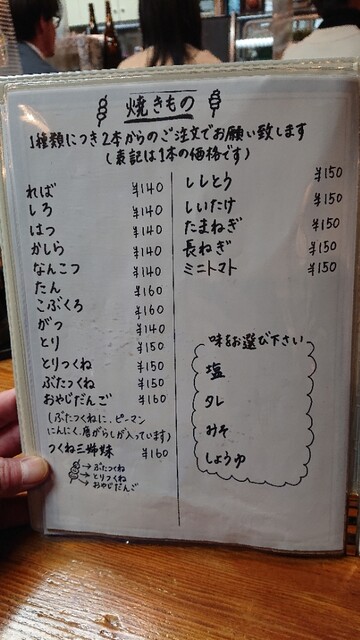 焼きもの
1種類につき2本からのご注文でお願い致します
(表記は1本の価格です)
れば ¥140
しろ ¥140
はつ ¥140
かしら ¥140
なんこつ ¥140
たん ¥160
こぶくろ ¥160
がつ ¥140
とり ¥150
とりつくね ¥150
ぶたつくね ¥150
おやじだんご ¥160
(ぶたつくねに、ピーマン
にんにく、唐がらしが入っています)
つくね三姉妹 ¥160
→ぶたつくね
→とりつくね
→おやじだんご
ししとう ¥150
しいたけ ¥150
たまねぎ ¥150
長ねぎ ¥150
ミニトマト ¥150
味をお選び下さい
塩
タレ
みそ
しょうゆ